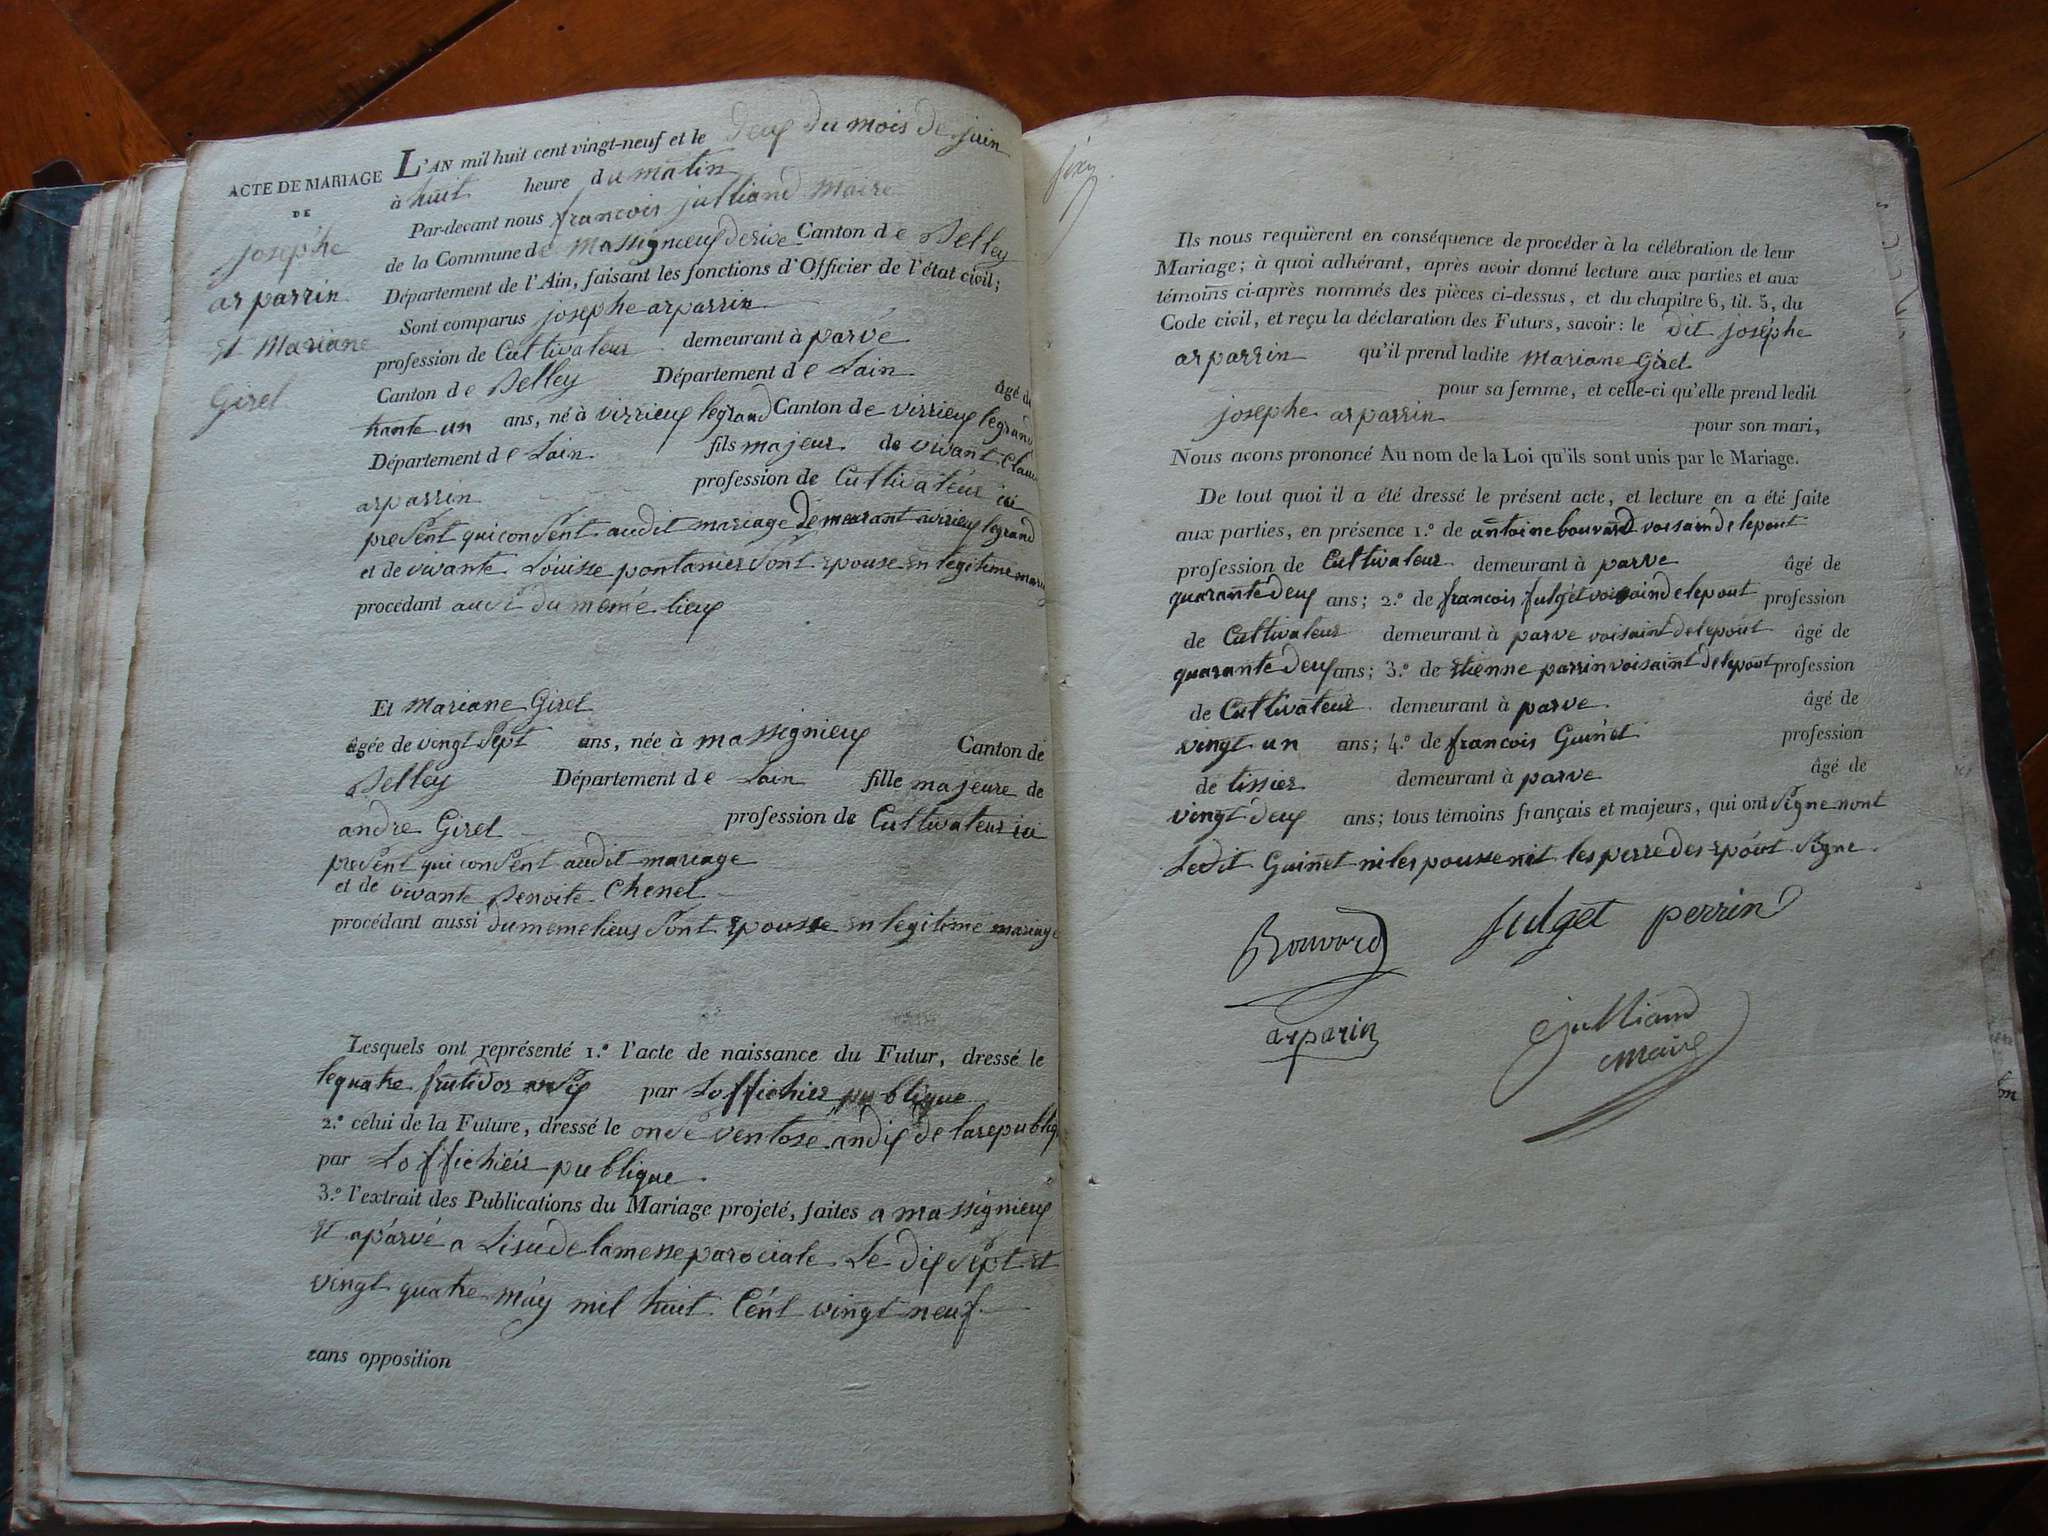 ACTE DE MARIAGE
DE
josephe
arparrin
et Mariane
Girel
L'AN mil huit cent vingt-neuf et le deux du mois de juin
à huit heure du matin
Par-devant nous francois julliand maire
de la Commune de massignieux de rive Canton de Belley
Département de l'Ain, faisant les fonctions d'Officier de l'état civil;
Sont comparus josephe arparrin
profession de Cultivateur demeurant à parve
Canton de Belley Département de Lain âgé de
trante un ans, né à virrieux legrand Canton de virrieux legrand
Département de Lain fils majeur de vivant Clau
arparrin profession de Cultivateur ici
present qui consent audit mariage demeurant avirrieux legrand
et de vivante Louisse pontanier sont epouse en legitime maria
procédant ausi du meme lieux
Et Mariane Girel
âgée de vingt sept ans, née à massignieux Canton de
Belley Département de Lain fille majeure de
andre Girel profession de Cultivateur ici
present qui consent audit mariage
et de vivante Benoite Chenel
procédant aussi du meme lieus sont epousse en legitime mariage
Lesquels ont représenté 1.º l'acte de naissance du Futur, dressé le
le quatre frutidor ansix par Loffichier publique
2.º celui de la Future, dressé le onse ventose an dix de la republiq
par Loffichier publique
3.º l'extrait des Publications du Mariage projeté, faites a massignieux
et a parvé a Lisue de la messe parociale Le dix sept et
vingt quatre may mil huit Cent vingt neuf
sans opposition
Ils nous requièrent en conséquence de procéder à la célébration de leur
Mariage; à quoi adhérant, après avoir donné lecture aux parties et aux
témoins ci-après nommés des pièces ci-dessus, et du chapitre 6, tit. 5, du
Code civil, et reçu la déclaration des Futurs, savoir: le dit josephe
arparrin qu'il prend ladite Mariane Girel
pour sa femme, et celle-ci qu'elle prend ledit
josephe arparrin pour son mari,
Nous avons prononcé Au nom de la Loi qu'ils sont unis par le Mariage.
De tout quoi il a été dressé le présent acte, et lecture en a été faite
aux parties, en présence 1.º de antoine bouvard voisain de lepout
profession de Cultivateur demeurant à parve âgé de
quarante deux ans; 2.º de francois fulget voisain de lepout profession
de Cultivateur demeurant à parve voisaint de lepout âgé de
quarante deux ans; 3.º de etienne parrin voisaint de lepout profession
de Cultivateur demeurant à parve âgé de
vingt un ans; 4.º de francois Guinet profession
de tissier demeurant à parve âgé de
vingt deux ans; tous témoins français et majeurs, qui ont signe nont
Ledit Guinet ni les pousse nit les perre des epout signe
Bouvard fulget perrin
arparin julliand
maire